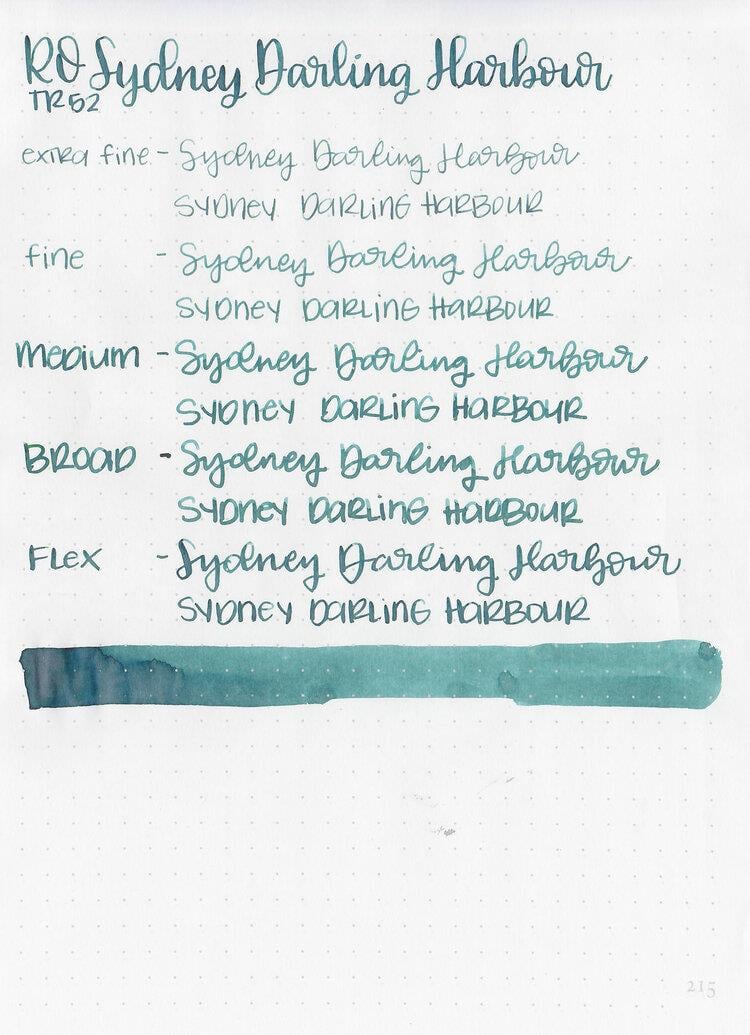 RO Sydney Darling Harbour
TR52
extra fine - Sydney Darling Harbour
SYDNEY DARLING HARBOUR
fine - Sydney Darling Harbour
SYDNEY DARLING HARBOUR
Medium - Sydney Darling Harbour
SYDNEY DARLING HARBOUR
BROAD - Sydney Darling Harbour
SYDNEY DARLING HARBOUR
FLEX - Sydney Darling Harbour
SYDNEY DARLING HARBOUR
215